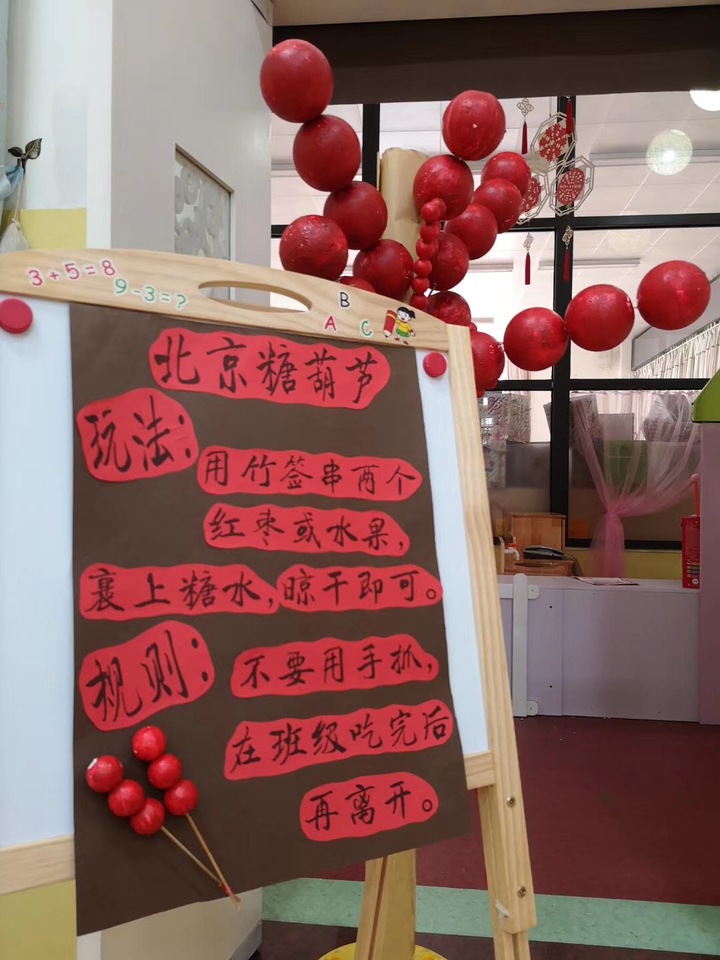 3+5=8
9-3=?
B
A C
北京糖葫芦
玩法：
用竹签串两个
红枣或水果，
裹上糖水，晾干即可。
规则：
不要用手抓，
在班级吃完后
再离开。